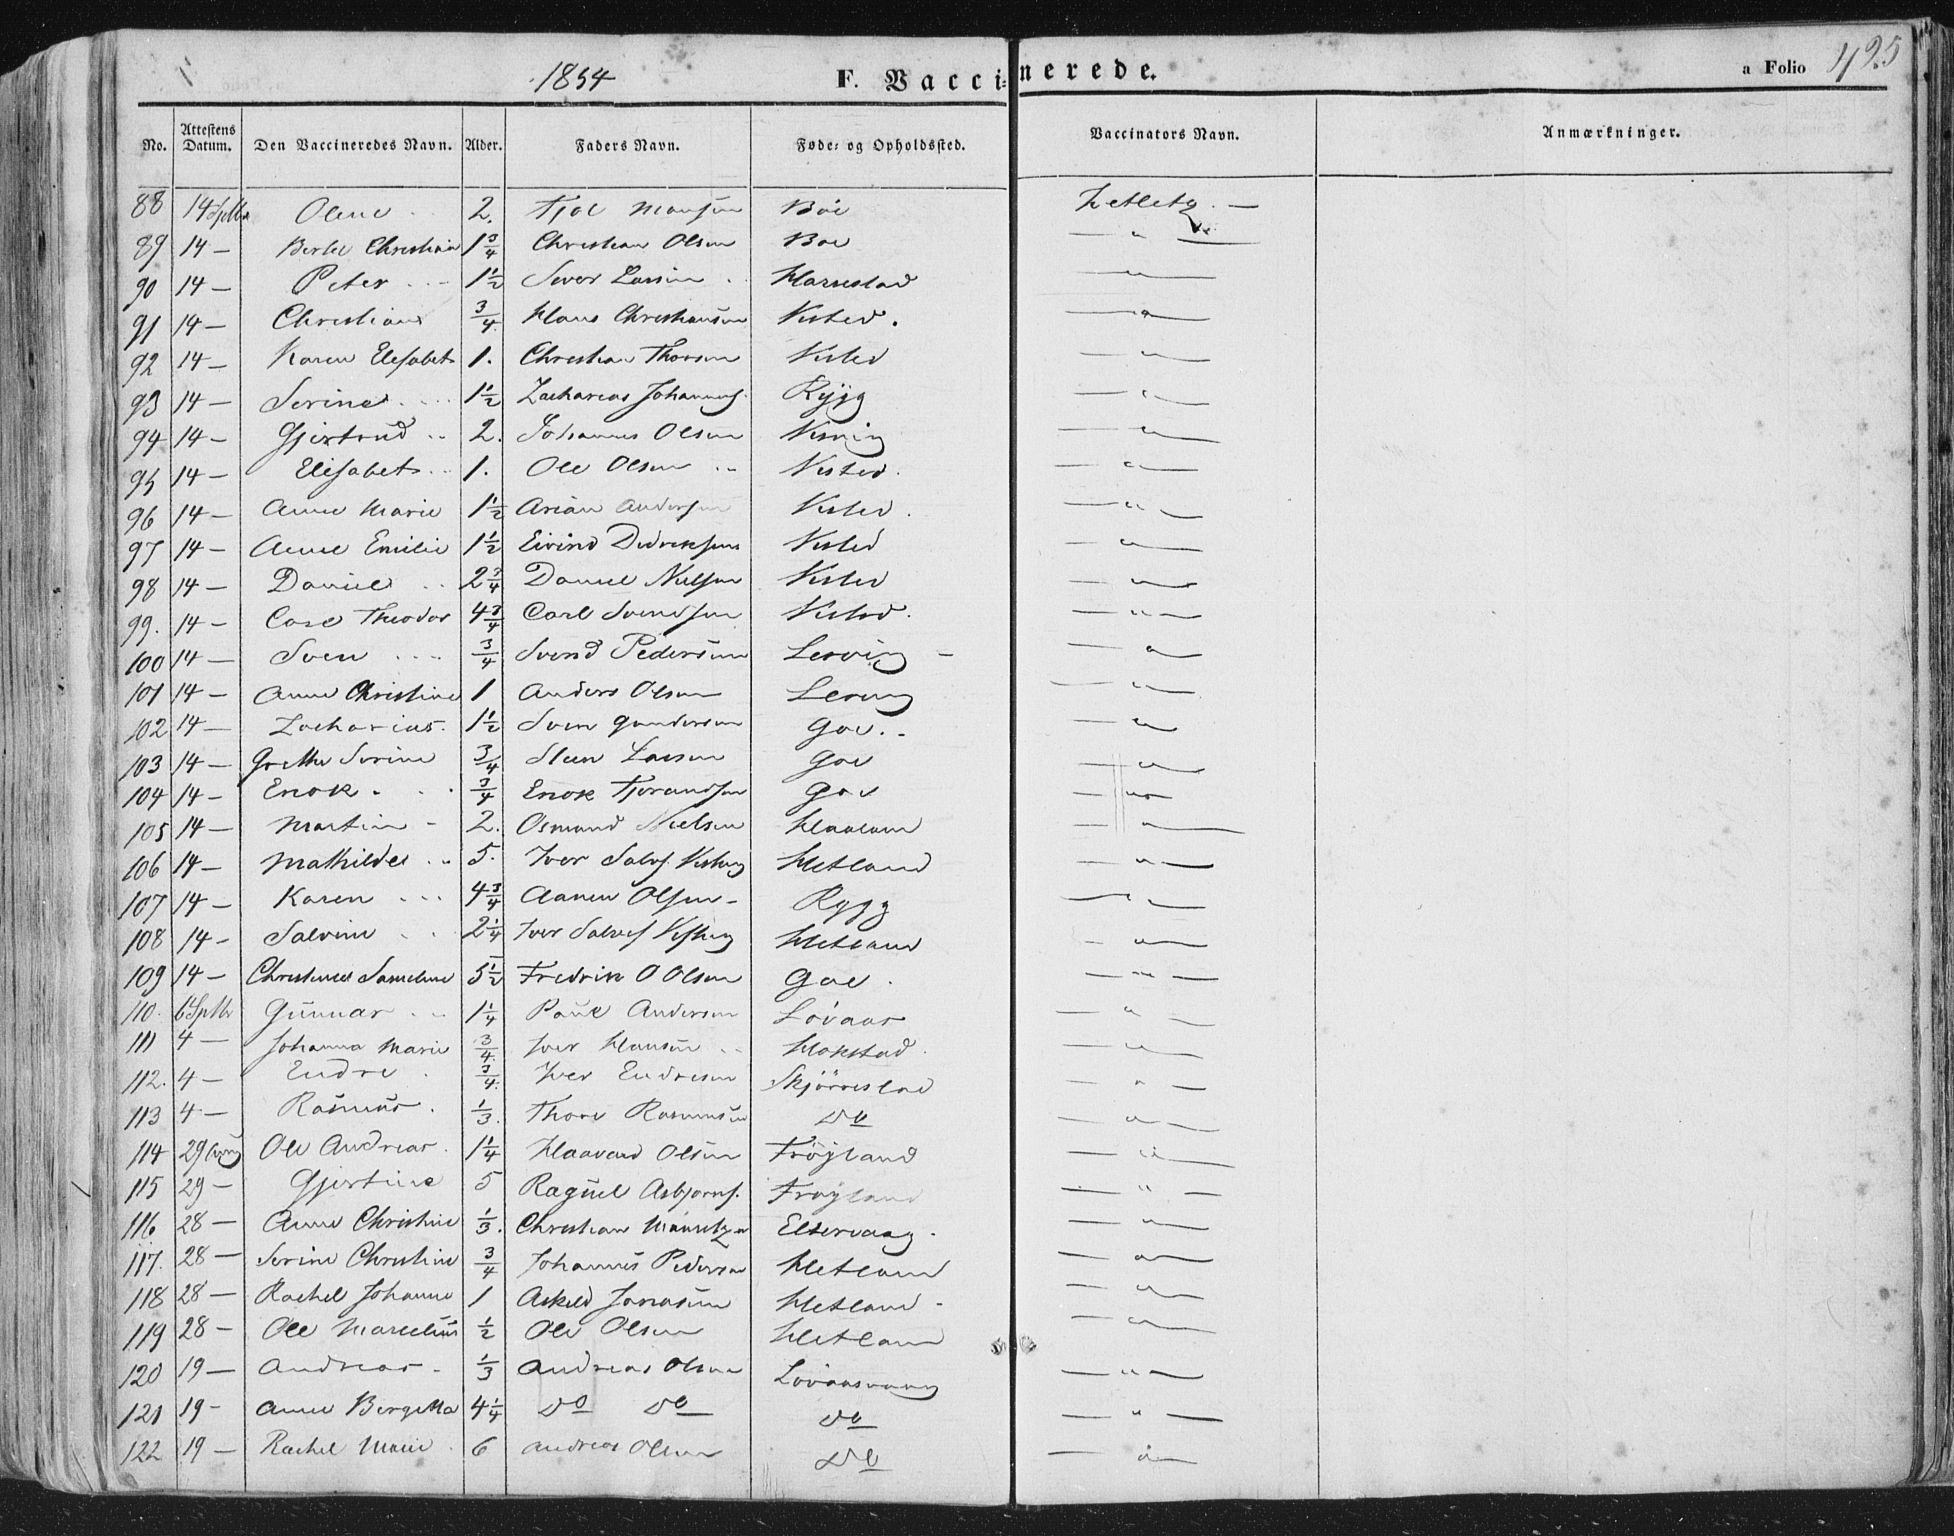 1854 F. Vaccinerede. a Folio 425
No. Attestens Datum. Den Vaccineredes Navn. Alder. Faders Navn. Føde- og Opholdssted. Vaccinators Navn. Anmærkninger.
88 14 Sptbr Olene 2. Bøe
89 14 — Christian 1 3/4 Christian Olsen Boe — " —
90 14 — Peter 1 1/2 Iver Larsen Harestad — " —
91 14 — Christiane 3/4 Klaus Christiansen Visted. — " —
92 14 — Karen Elisabet 1. Christian Thorsen Visted — " —
93 14 — Serine 1 1/2 Zacharias Johannes. Rygg — " —
94 14 — Gjertrud 2. Johannes Olsen — " —
95 14 — Elisabet 1. Ole Olsen Visted. — " —
96 14 — Anne Marie 1 1/2 Arian Andersen Visted. — " —
97 14 — Anne Emilie 1 1/2 Eivind Didriksen Visted — " —
98 14 — Daniel 2 3/4 Daniel Nielsen Visted — " —
99. 14 — Carl Theodor 4 3/4 Carl Svendsen Visted. — " —
100 14 — Sven 3/4 Svend Pedersen — " —
101 14 — Anne Christine 1 Anders Olsen — " —
102 14 — Zacharias. 1 1/2 Sven Gundersen Goe. — " —
103 14 — Grethe Serine 3/4 Steen Larsen Goe — " —
104 14 — Enok 3/4 Enok Tjorandsen Goe — " —
105 14 — Martin 2. Osmund Nielsen Haaland — " —
106 14 — Mathilde 5. Iver Salves. Hetland — " —
107 14 — Karen 4 3/4 Aanen Olsen Rygg — " —
108 14 — Salvine 2 1/4 Iver Salves Hetland — " —
109 14 — Christence Sameline 5 1/2 Fredrik O Olsen Goe. — " —
110. 6 Sptbr Gunnar 1 1/4 Paul Andersen Løvaas — " —
111 4 — Johanna Marie 3/4 Iver Hansen Hokstad. — " —
112. 4 — Endre 3/4 Iver Endresen Skjørrestad — " —
113 4 — Rasmus 1/3 Thore Rasmussen do — " —
114 29 Ole Andreas 1 1/4 Haavard Olsen Frøyland — " —
115 29 — Gjertine 5 Raguel Asbjørns. Frøyland — " —
116 28 — Anne Christine 1/3. Christian Eltervaag. — " —
117. 28 — Serine Christine 3/4 Johannes Pedersen Hetland — " —
118 28 — Rachel Johanne 1 Askild Jonasen Hetland — " —
119 28 — Ole Marcelius 1/2 Ole Olsen Hetland — " —
120 19 — Andreas 1/3 Andreas Olsen Løvaasvaag — " —
121 19 — Anne Bergitta 4 1/4 do do do — " —
122 19 — Rachel Marie 6 Andreas Olsen do — " —